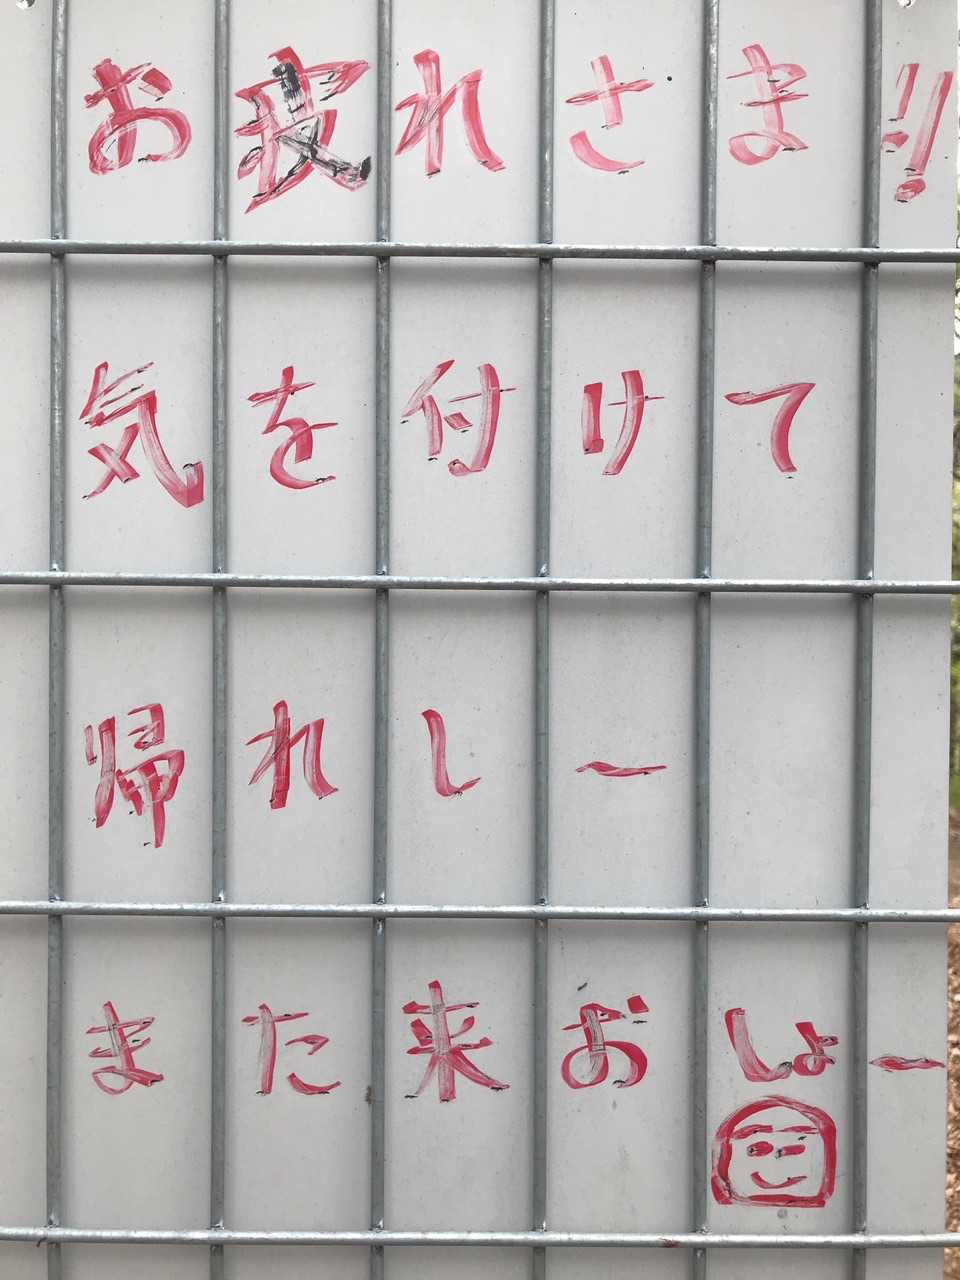 お疲れさま!!
気を付けて
帰れしー
また来おしょー